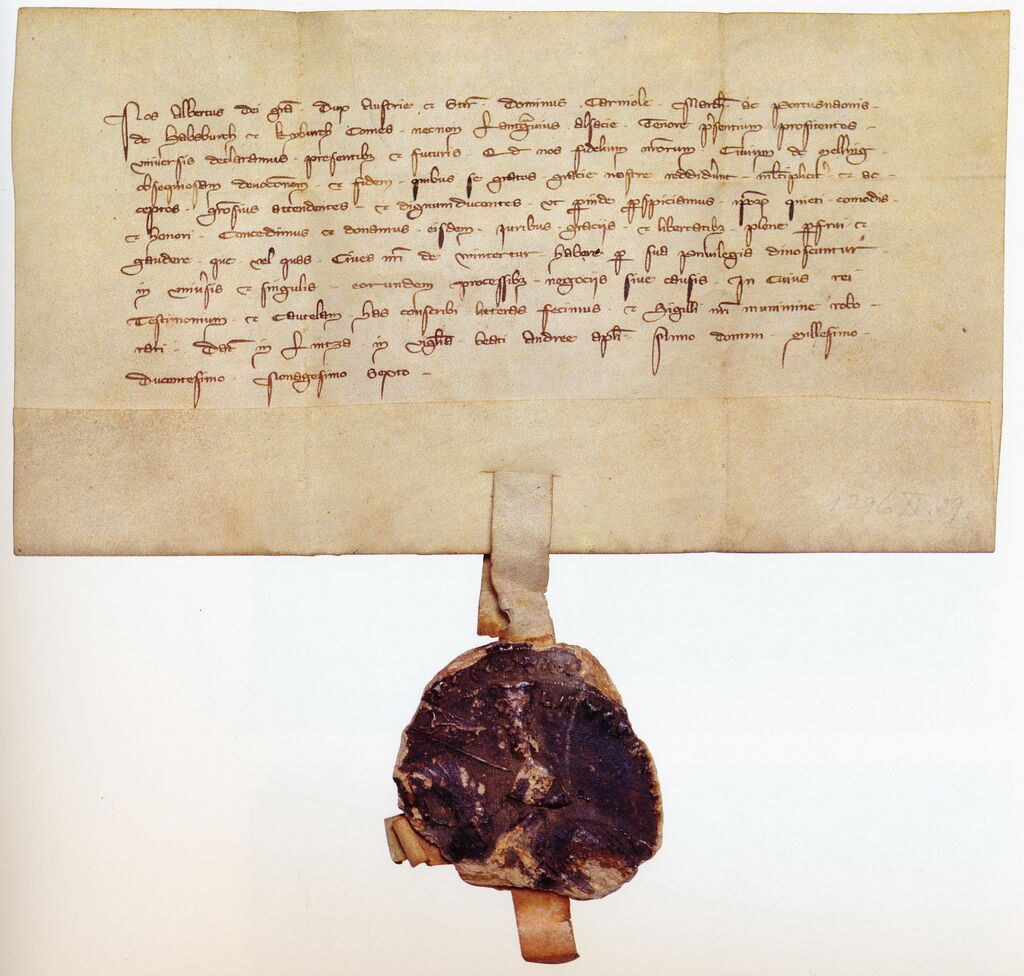 Nos Albertus dei gra. Dux Austrie et Stir. dominus Carniole. March. ac Portusnaonis.
de Habsburch et Kyburch Comes. necnon Lantgrauius alsacie. Tenore presentium profitentes
vniuersis declaramus. presentibz et futuris. Qd nos fidelium nrorum Ciuium de mellmg
obsequiosam deuoconem. et fidem. quibus se gratos gracie nostre reddidunt. mltiplicit. et ac
ceptos. grosius attendentes. et dignum ducentes. vt proinde prospiciamus. ipor. quieti. comodis.
et honori. Concedimus et donamus. eisdem. iuribus. graciis. et libertatibz. plene perfrui et
gaudere. que vel quas. Ciues nri de wintertur habere per sua priuilegia dinoscuntur
in vniuersis et singulis. eorundem processibz. negociis siue causis. In Cuius rei
Testimonium. et Cautelam. has conscribi litteras fecimus. et Sigilli nri munimine robo
rari. Dat. in Lintza. in vigilia. beati Andree apli. Anno domini Millesimo.
Ducentesimo. Nonagesimo Sexto.
1296 XI. 29.